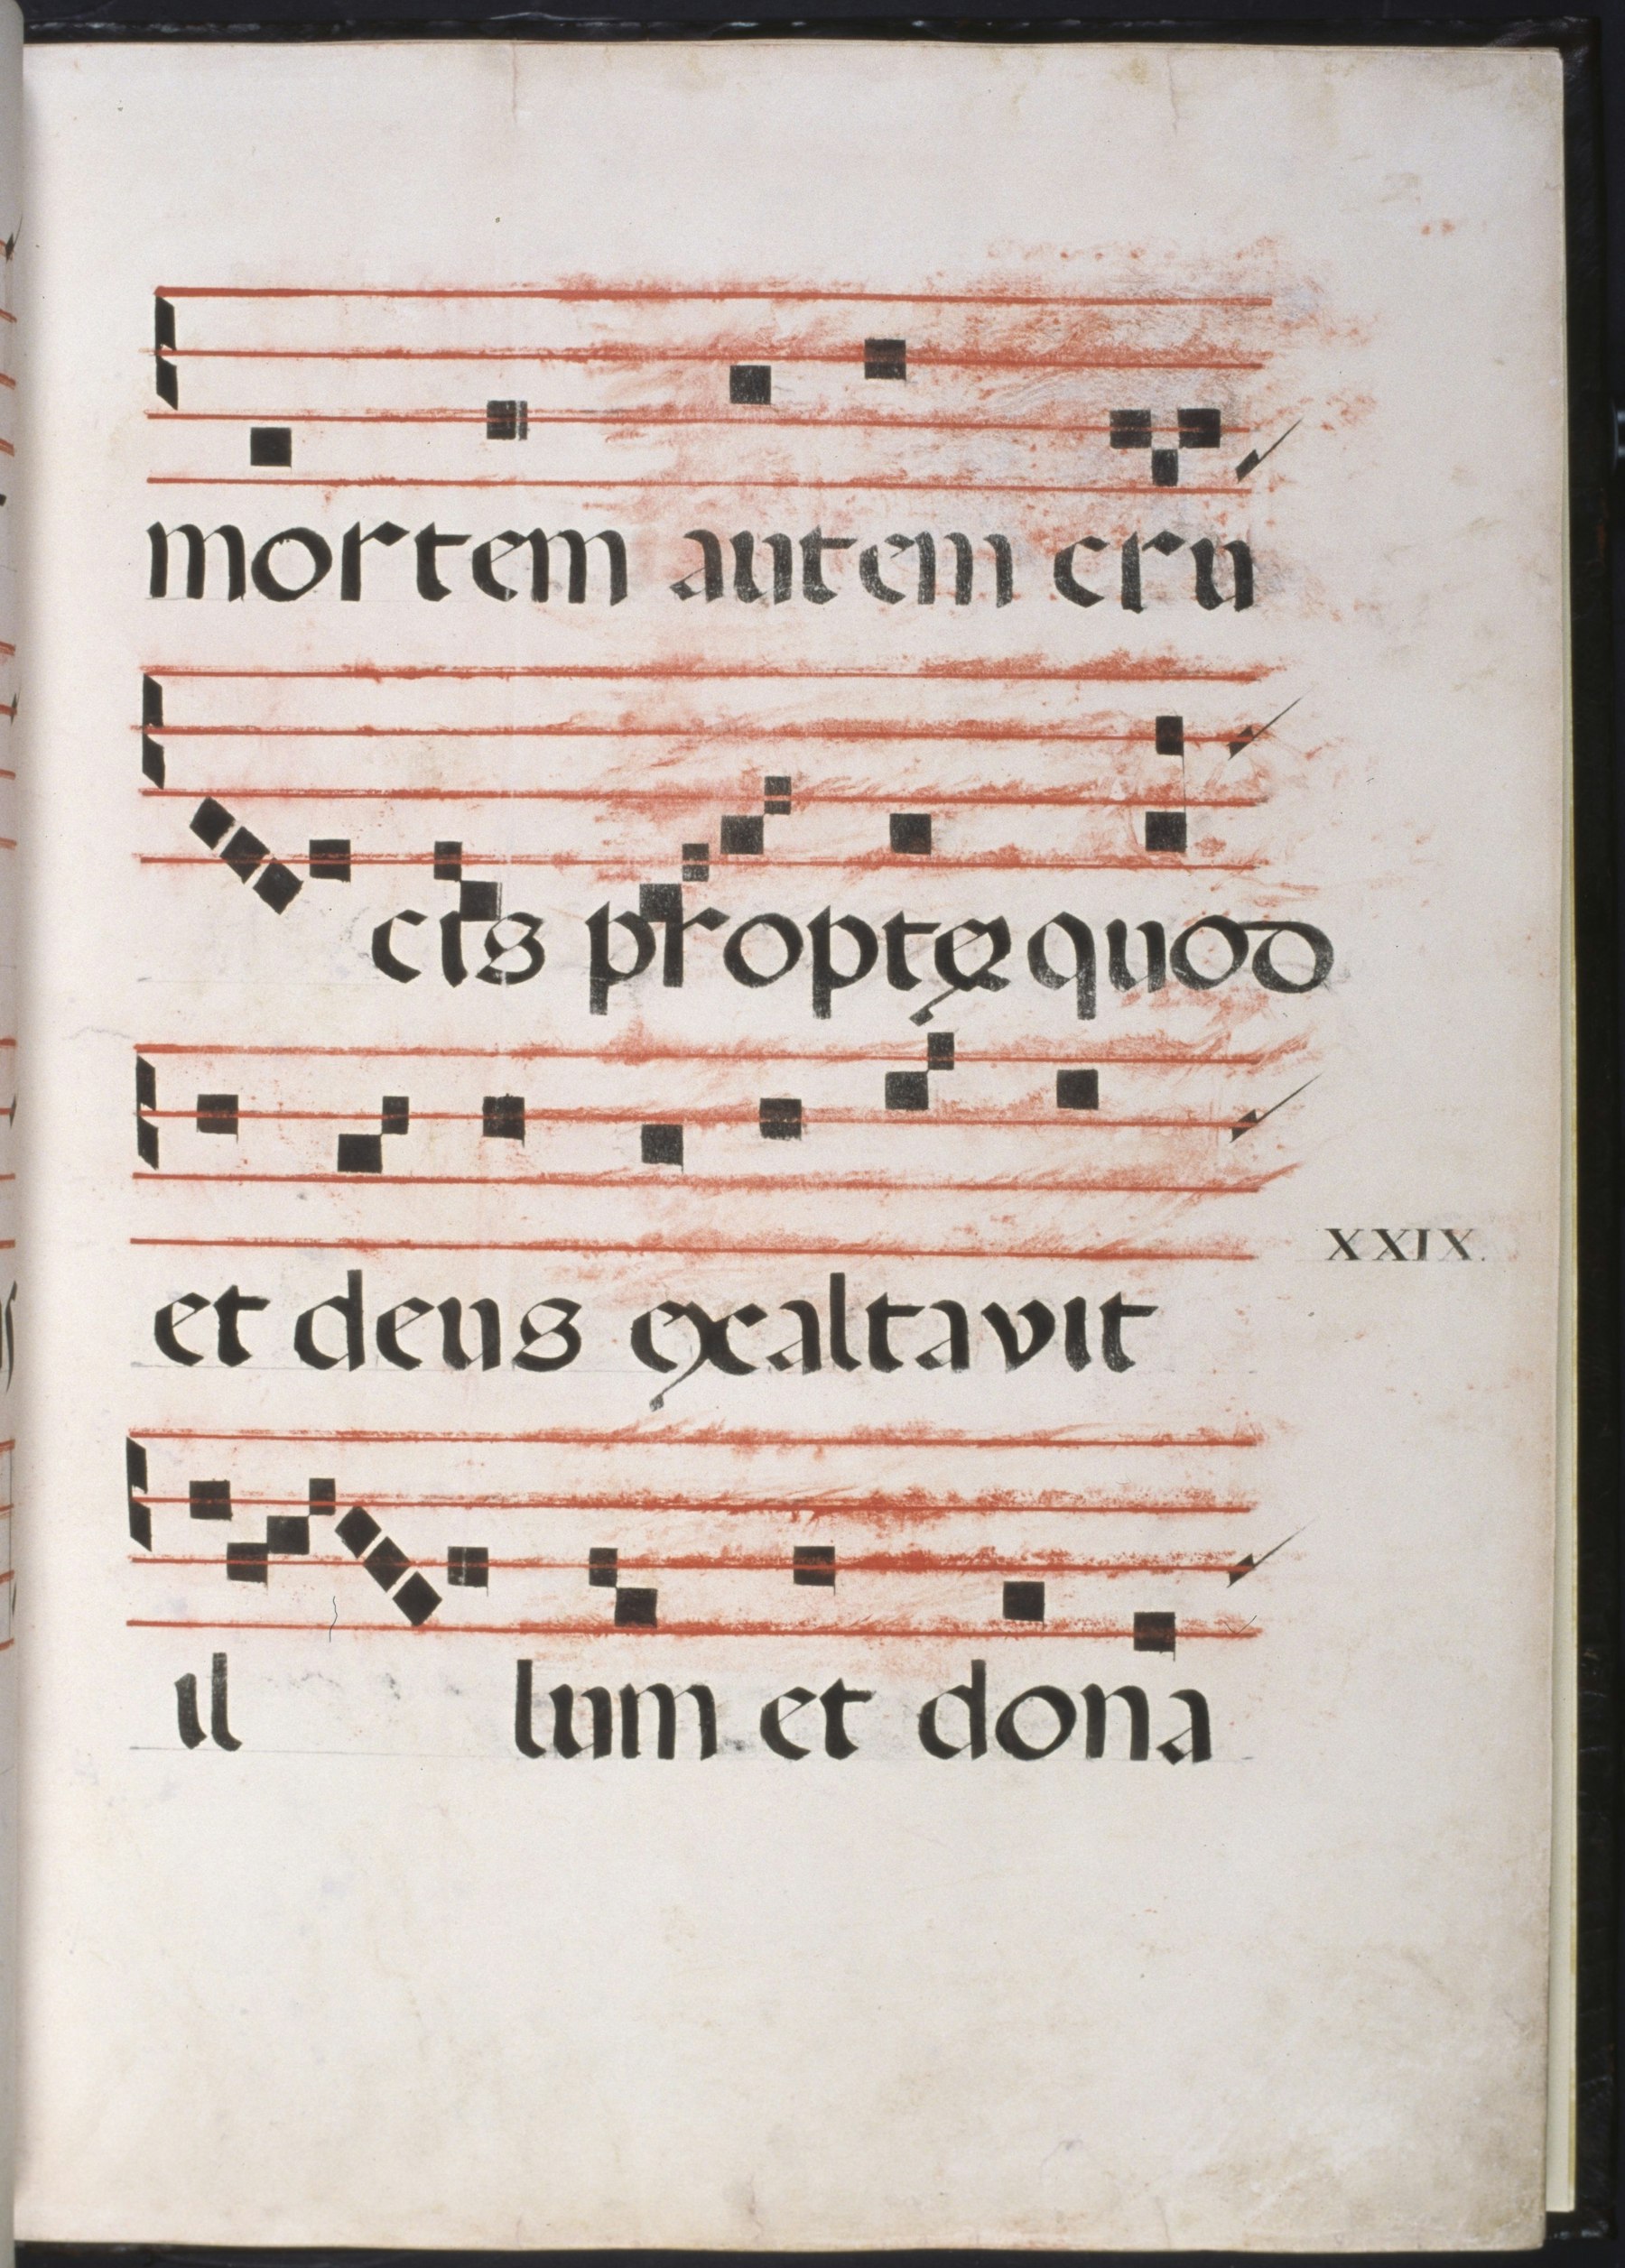 mortem autem cru
cis propter quod
et deus exaltavit
XXIX.
il lum et dona